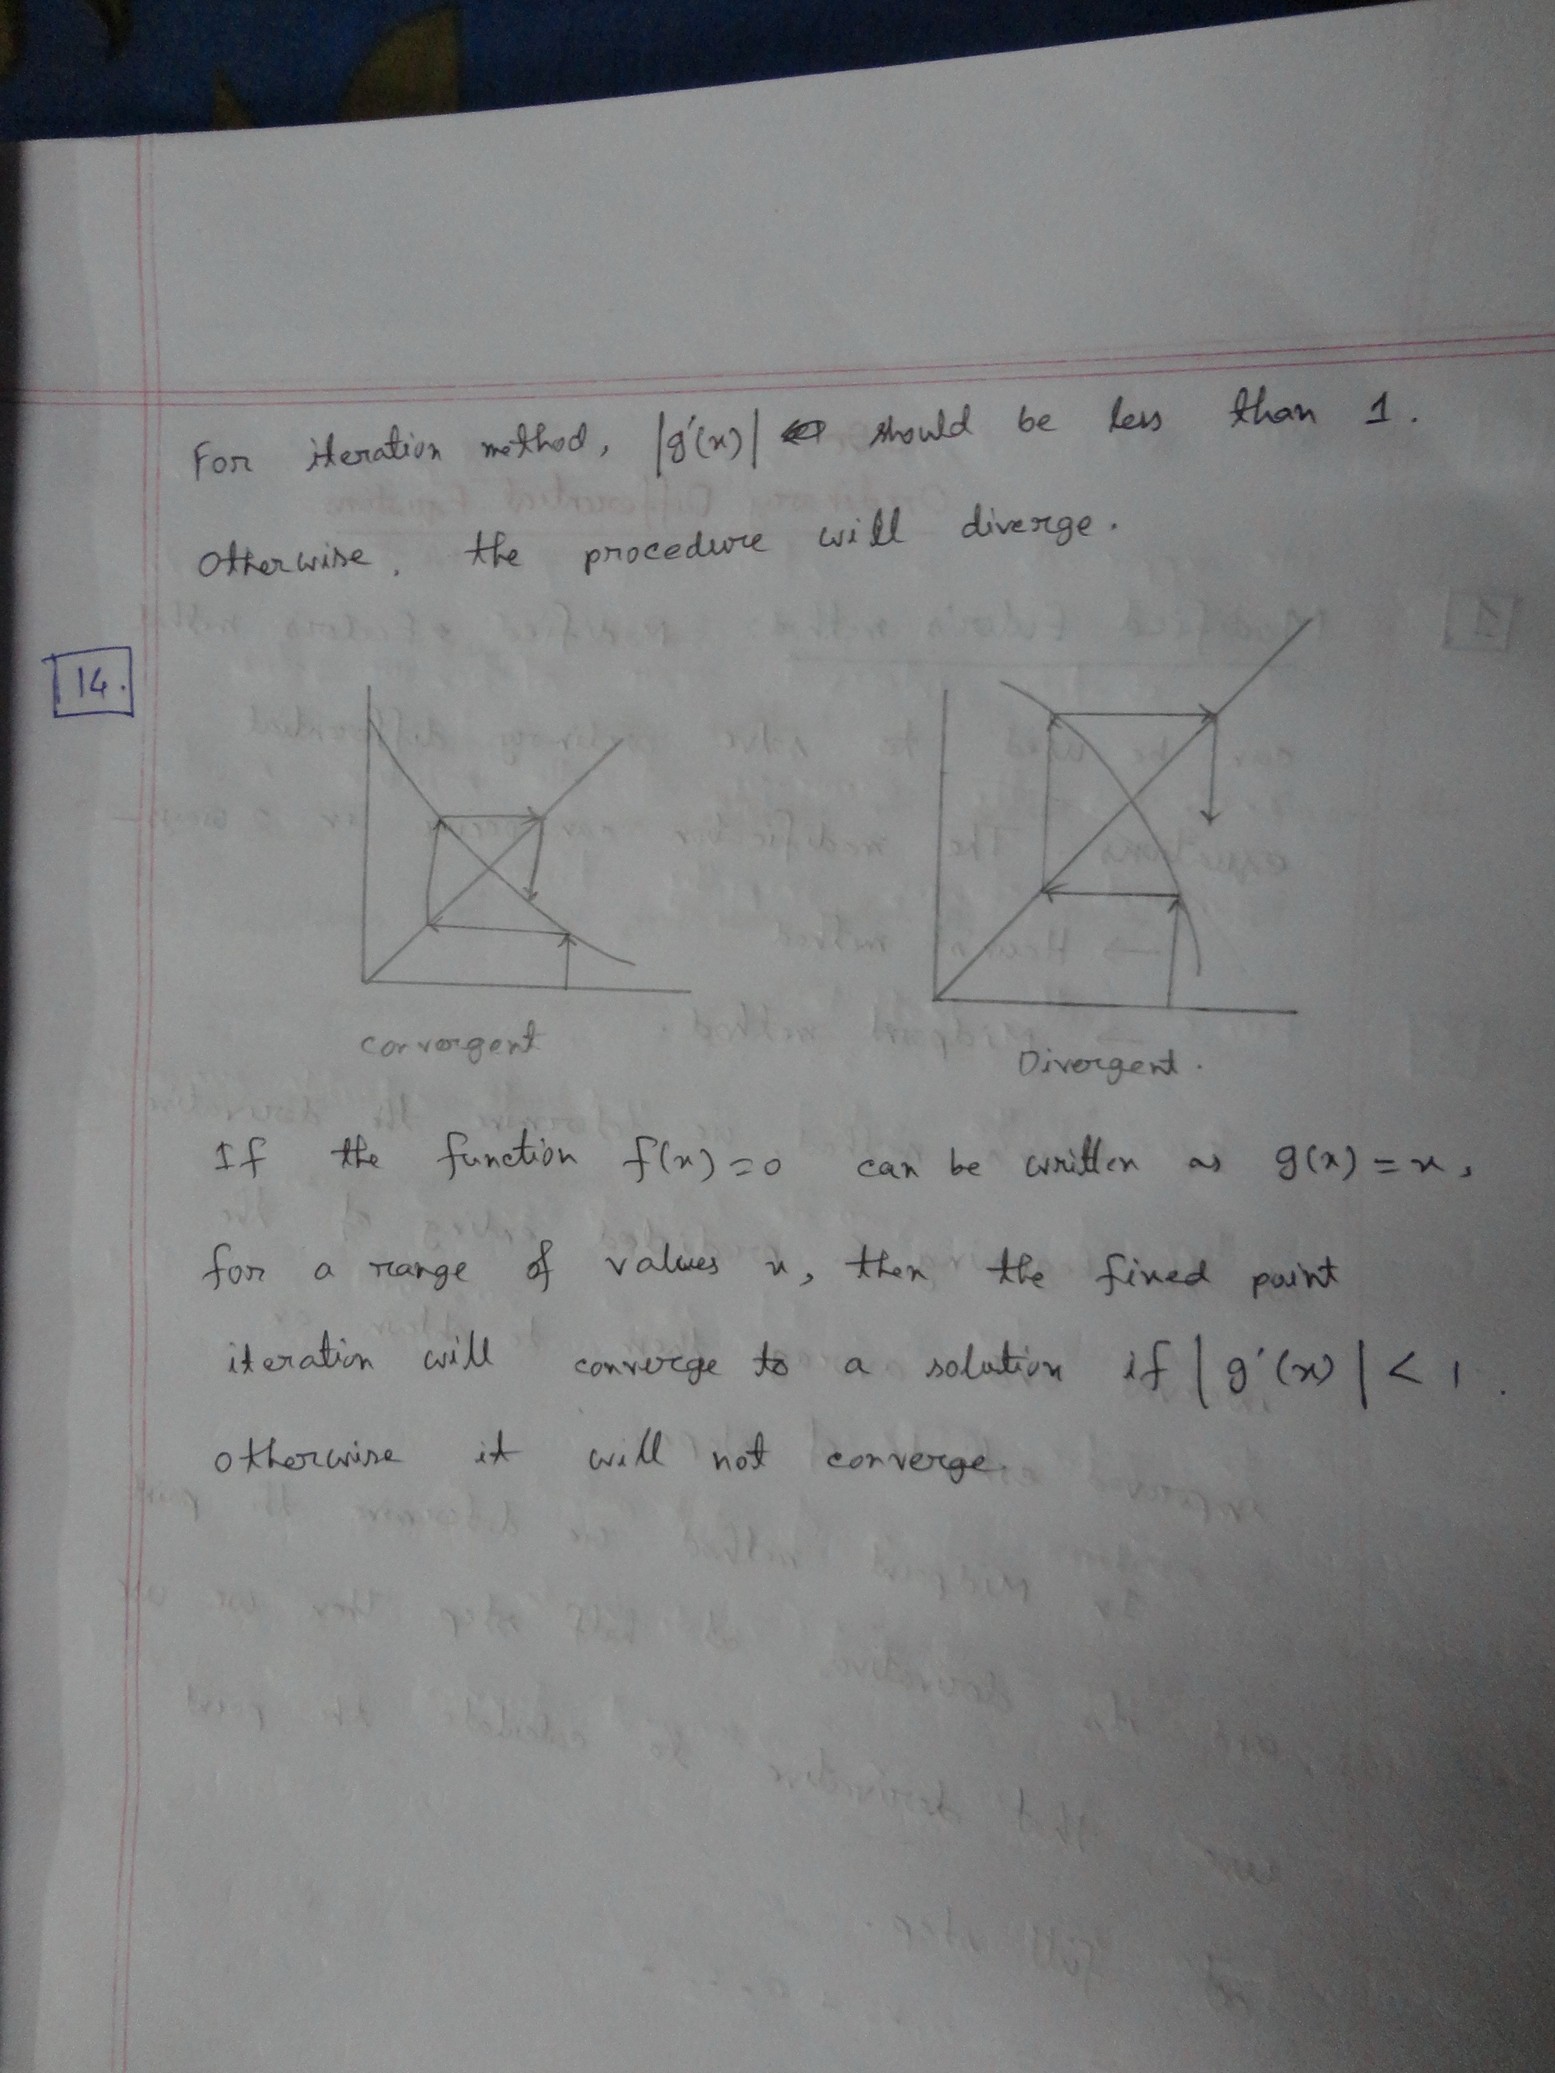 For iteration method, |g'(x)| should be less than 1.
Otherwise, the procedure will diverge.
14.
convergent
Divergent.
If the function f(x)=0 can be written as g(x)=x,
for a range of values x, then the fixed point
iteration will converge to a solution if |g'(x)| < 1.
otherwise it will not converge.